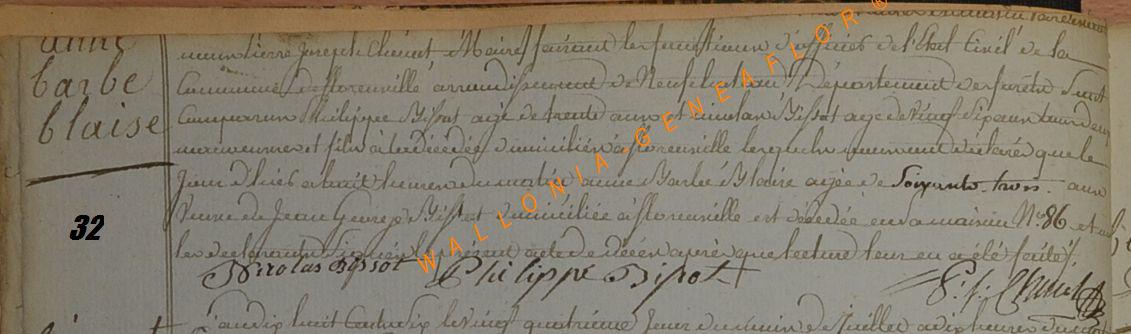 anne
barbe
blaise
32
nous Pierre Joseph Clément, Maire faisant les fonctions d'officier de l'Etat Civil de la
Commune de florenville arrondissement de Neufchateau Département de forêts Sont
Comparus Philippe Bissot agé de trente ans et nicolas Bissot agé de Vingt Six ans tous deux
et fils à la décédée domiciliés à florenville lesquels nous ont déclarés que le
Jour d'hier à huit heures du matin anne Barbe Blaise agée de Soixante-trois ans
Veuve de Jean George Bissot domiciliée à florenville est décédée en sa maison No 86 et
les declarants signé le présent acte de décés après que lecture leur en a été faite
Nicolas Bissot Philippe Bissot P. J. Clément
L'an dix huit cent dix le vingt quatrième Jour du mois de Juillet a dix heures du
WALLONIA-GENEAFLOR®